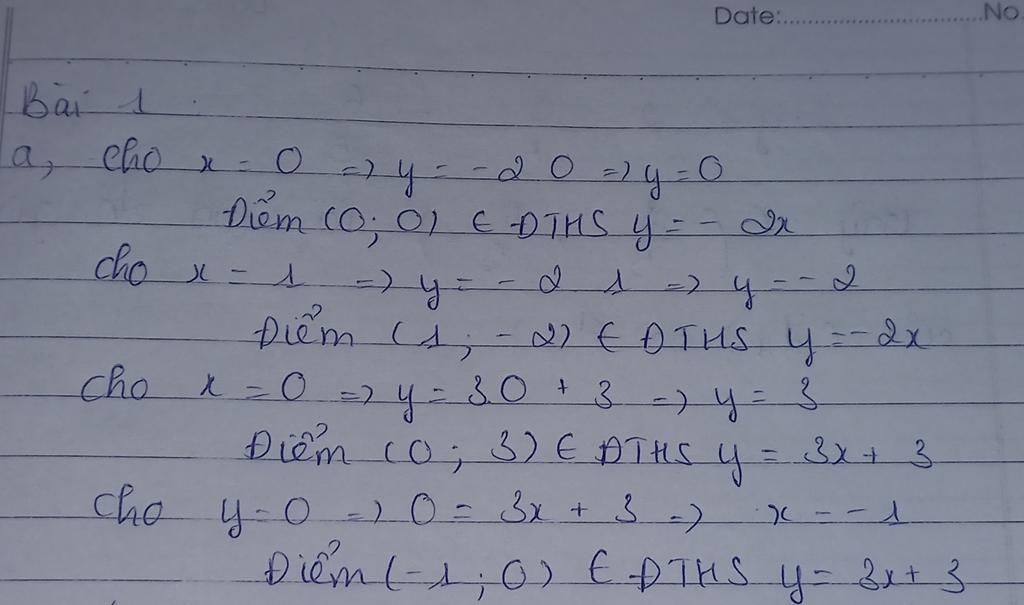 Date:..................................No
Bài 1
a, Cho x = 0 => y = -2 0 => y = 0
Điểm (0; 0) ∈ ĐTHS y = - 2x
Cho x = 1 => y = - 2 1 => y = - 2
Điểm (1; -2) ∈ ĐTHS y = -2x
Cho x = 0 => y = 3.0 + 3 => y = 3
Điểm (0; 3) ∈ ĐTHS y = 3x + 3
Cho y = 0 => 0 = 3x + 3 => x = -1
Điểm (-1; 0) ∈ ĐTHS y = 3x + 3